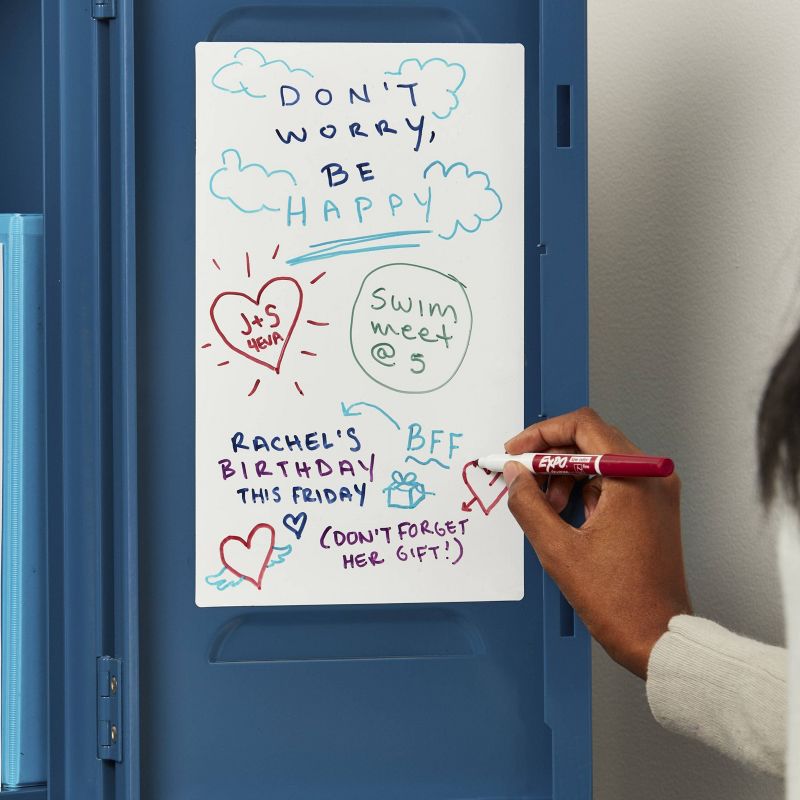 DON'T
WORRY,
BE
HAPPY
J+S
4EVA
SWIM
meet
@ 5
BFF
RACHEL'S
BIRTHDAY
THIS FRIDAY
(DON'T FORGET
HER GIFT!)
EXPO